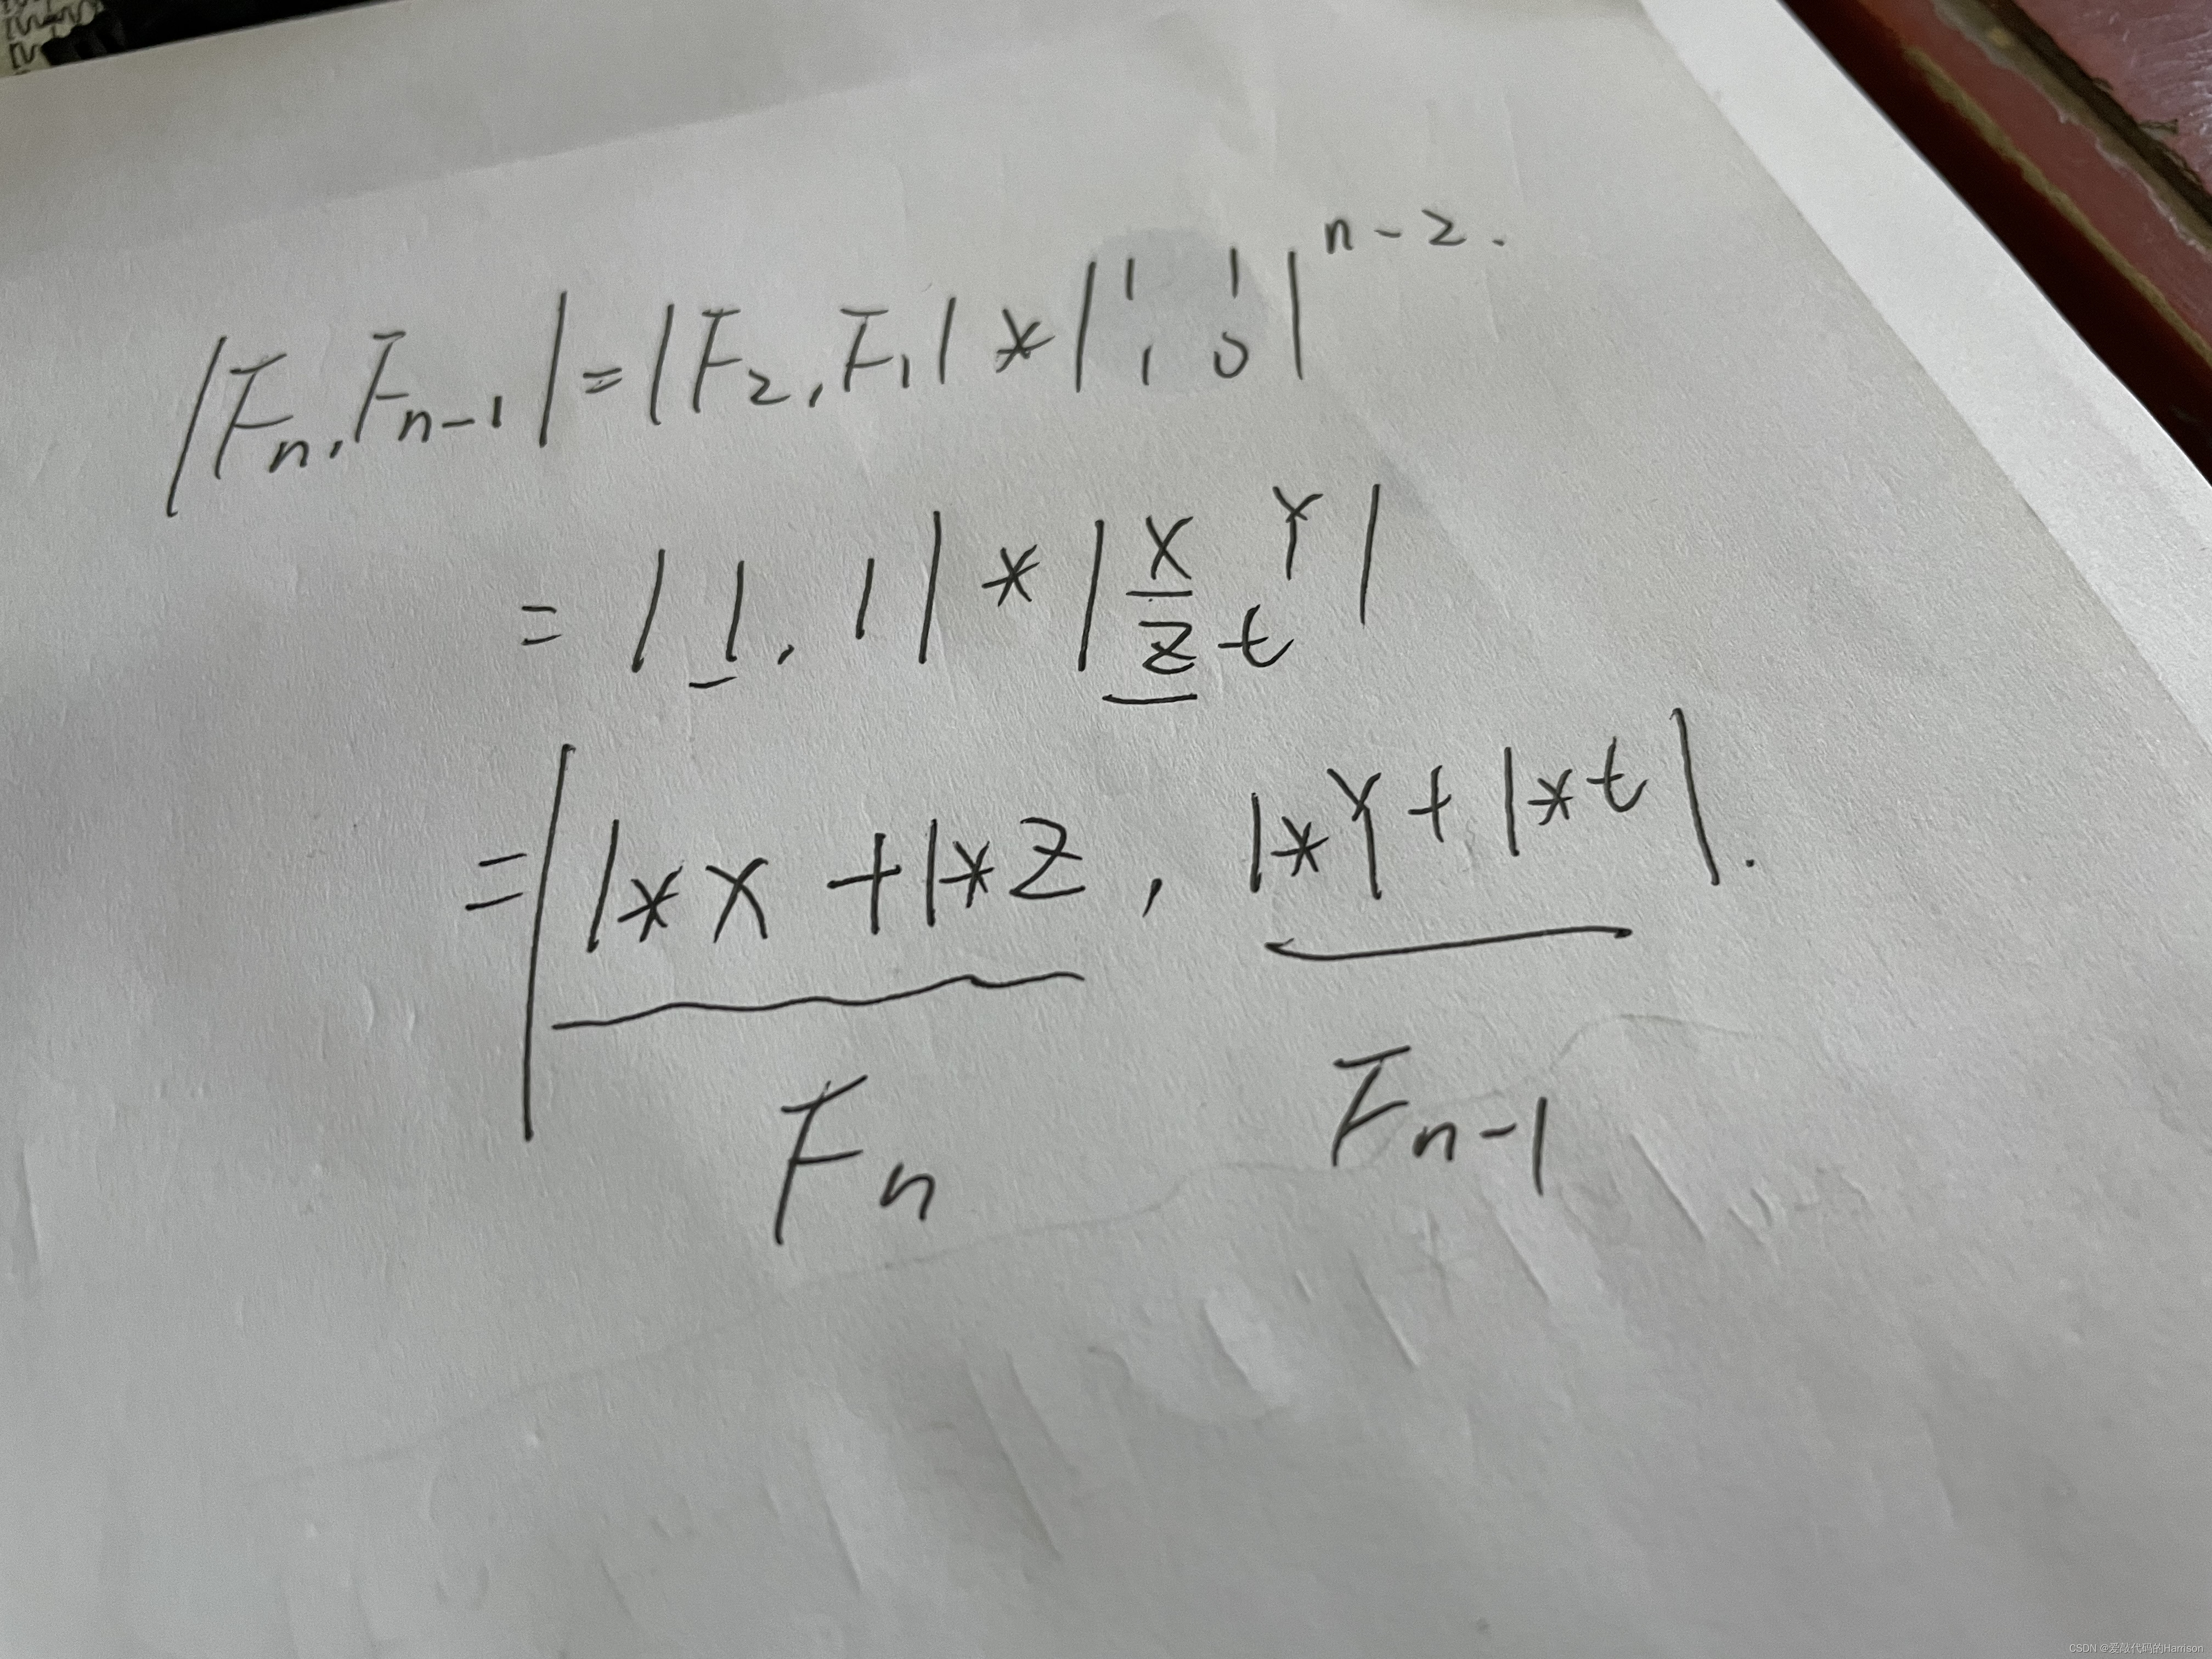 |Fn, Fn-1| = |F2, F1| * |1 1 1 0|^n-2.
= |1, 1| * |x y z t|
= |1*x + 1*z, 1*y + 1*t|.
Fn Fn-1
CSDN @爱敲代码的Harrison